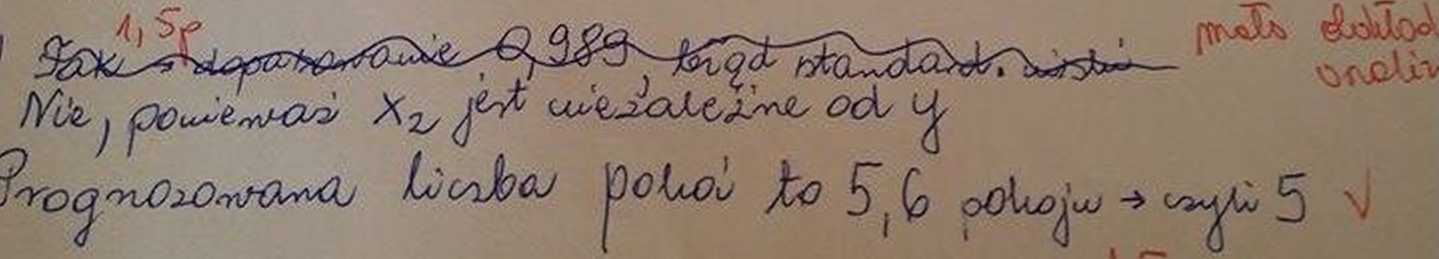 1,5p
Tak → dopasowanie 0,989, błąd standard. mało dokład
Nie, ponieważ x₂ jest niezależne od y
Prognozowana liczba pokoi to 5,6 pokoju → czyli 5 ✓